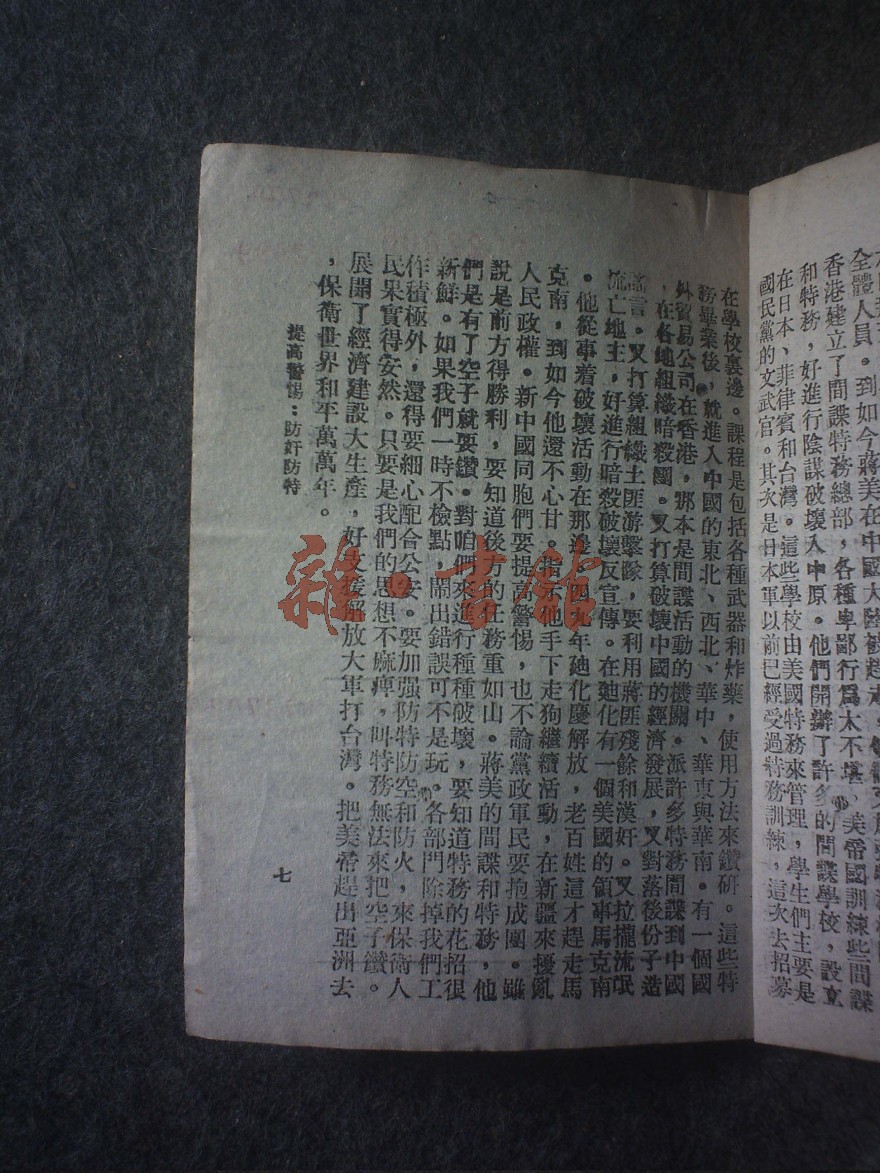 全體人員。到如今蔣美在中國大陸被趕走,
香港建立了間諜特務總部,各種卑鄙行爲太不堪、美帝國訓練些間諜
和特務,好進行陰謀破壞入中原。他們開辦了許多的間諜學校,設立
在日本、菲律賓和台灣。這些學校由美國特務來管理,學生們主要是
國民黨的文武官。其次是日本軍以前已經受過特務訓練,這次去招募
在學校裏邊。課程是包括各種武器和炸藥,使用方法來鑽研。這些特
務畢業後,就進入中國的東北、西北、華中、華東與華南。有一個國
外貿易公司在香港,那本是間諜活動的機關。派許多特務間諜到中國
,在各地組織暗殺團。又打算破壞中國的經濟發展,又對落後份子造
謠言。又打算組織土匪游擊隊,要利用蔣匪殘餘和漢奸。又拉攏流氓
流亡地主,好進行暗殺破壞反宣傳。在廸化有一個美國的領事馬克南
。他從事着破壞活動在那邊,四九年廸化慶解放,老百姓這才趕走馬
克南,到如今他還不心甘。指示他手下走狗繼續活動,在新疆來擾亂
人民政權。新中國同胞們要提高警惕,也不論黨政軍民要抱成團。雖
說是前方得勝利,要知道後方的任務重如山。蔣美的間諜和特務,他
們是有了空子就要鑽。對咱們來進行種種破壞,要知道特務的花招很
新鮮。如果我們一時不檢點,鬧出錯誤可不是玩。各部門除掉我們工
作積極外,還得要細心配合公安。要加强防特防空和防火,來保衛人
民果實得安然。只要是我們的思想不麻痺,叫特務無法來把空子鑽。
展開了經濟建設大生產,好支援解放大軍打台灣。把美帝趕出亞洲去
,保衛世界和平萬萬年。
提高警惕:防奸防特
七
雜·書館